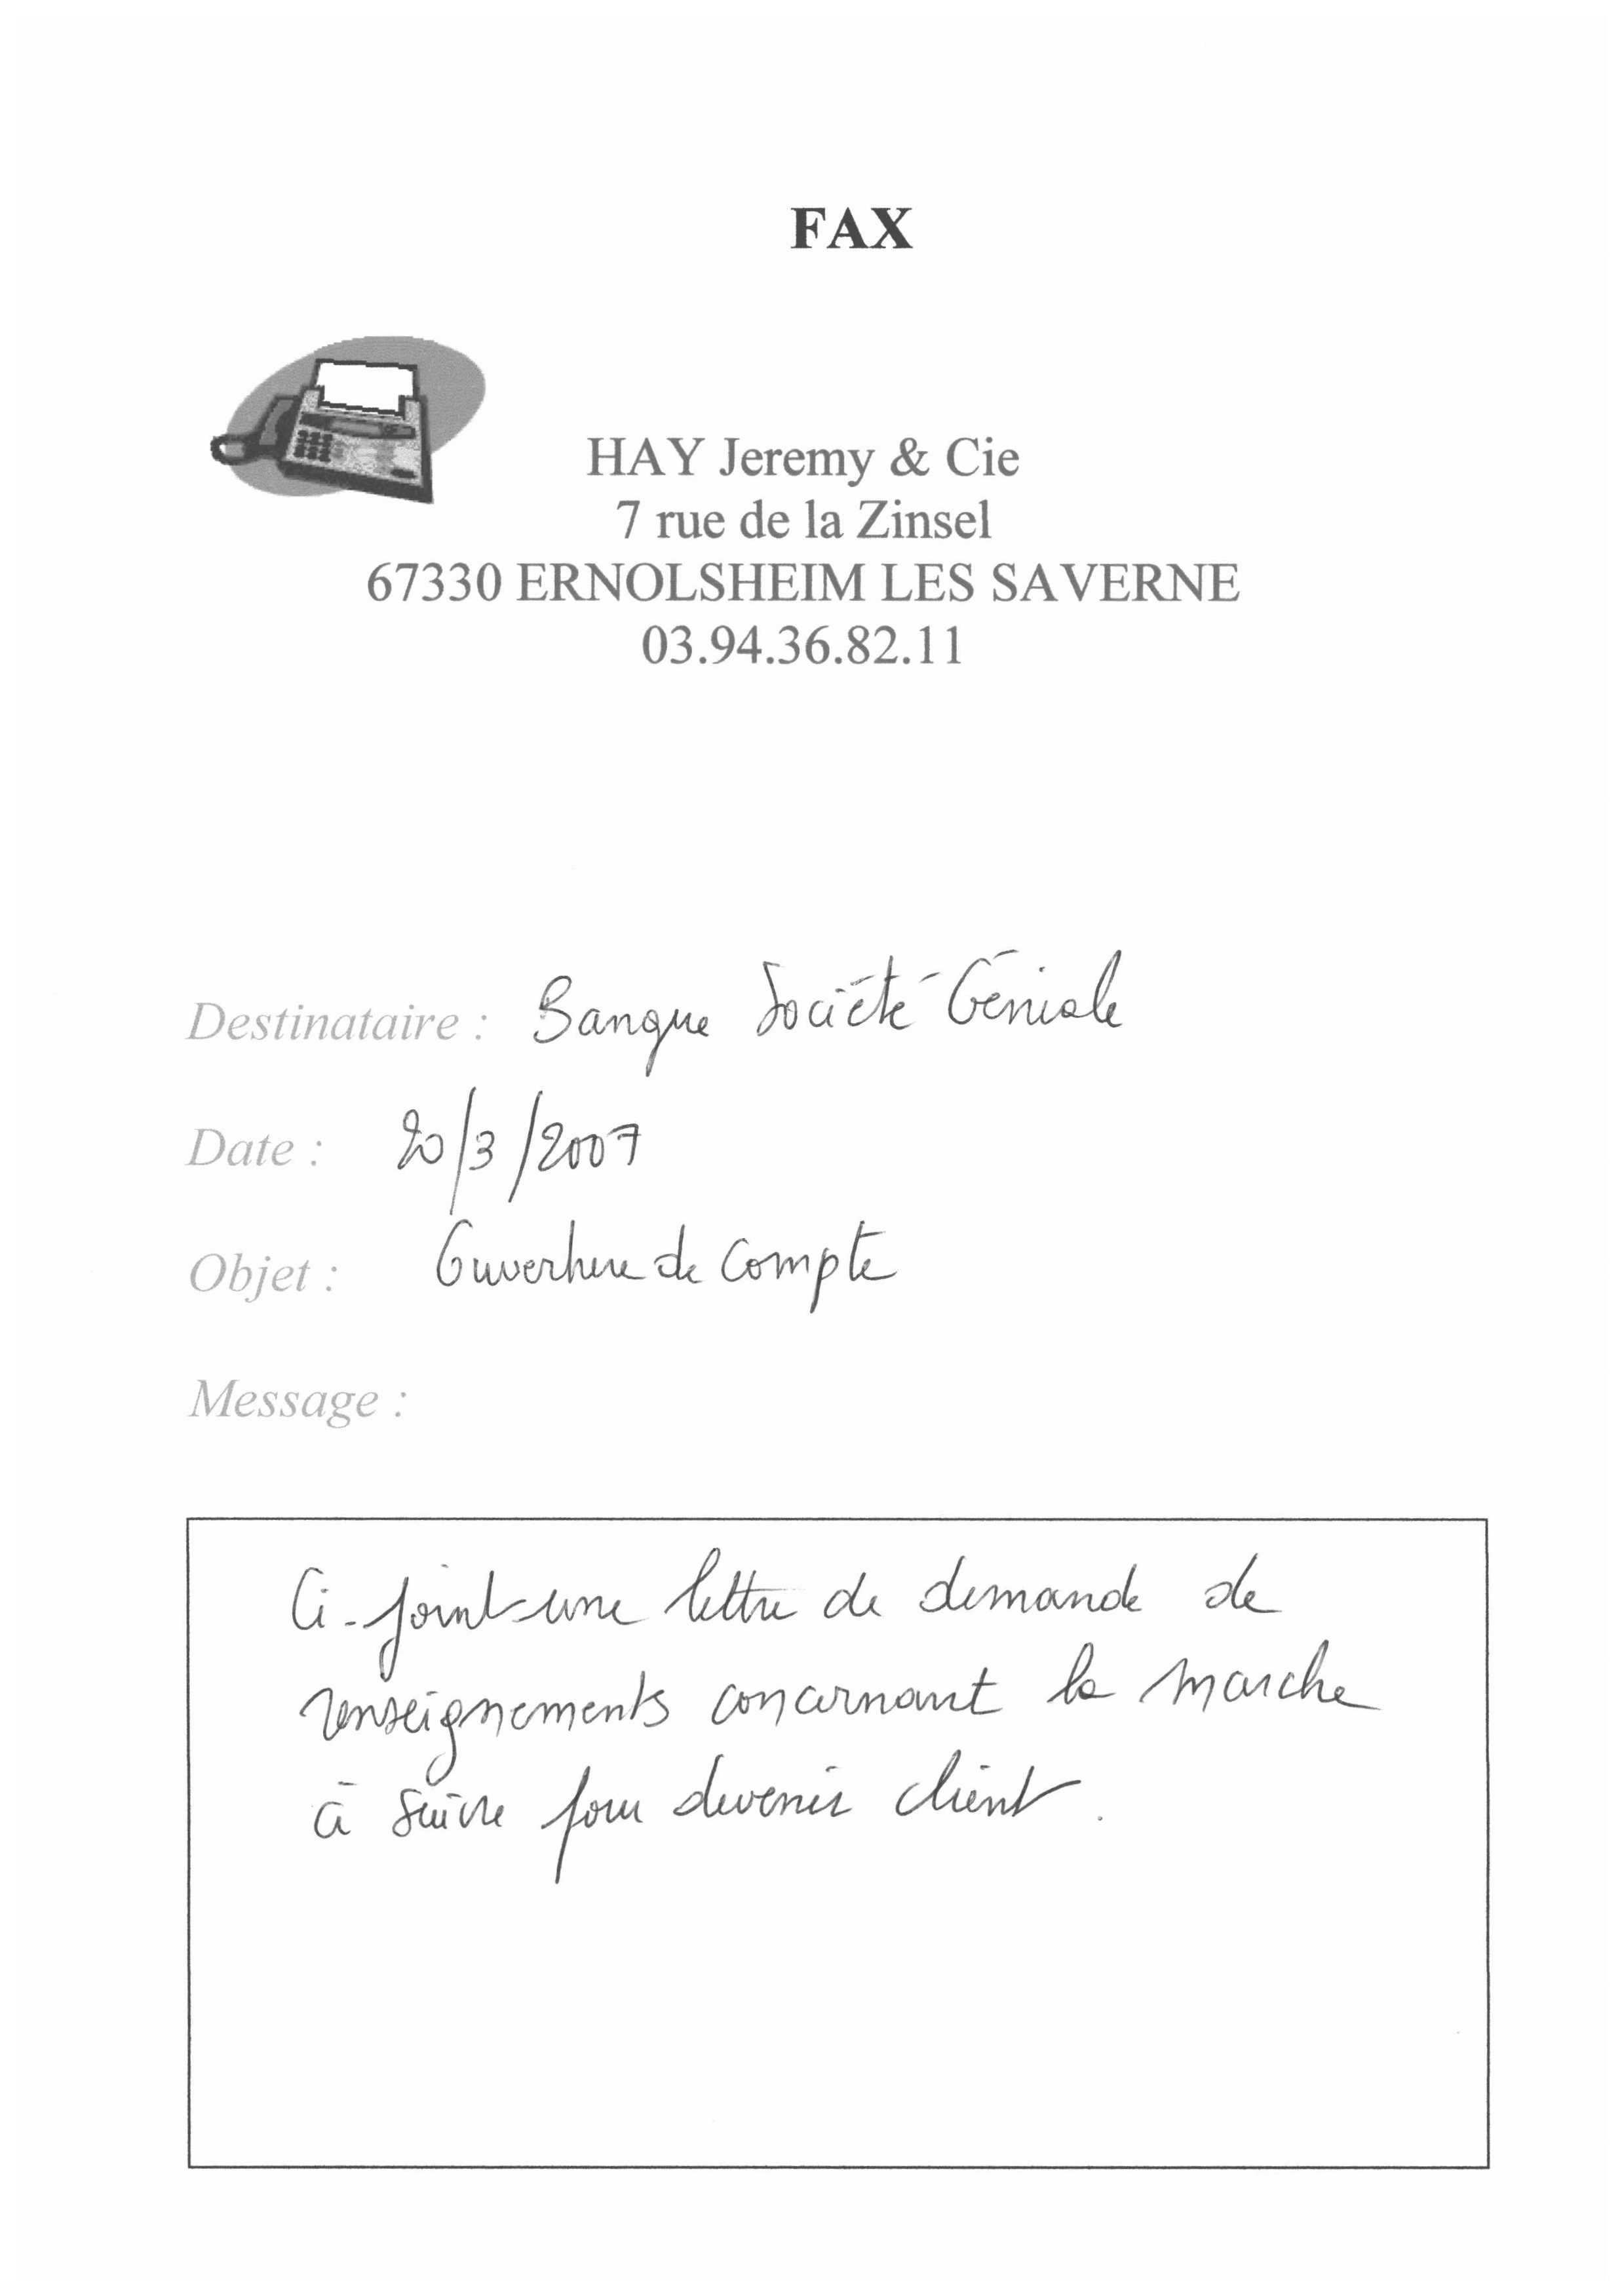 FAX
HAY Jeremy & Cie
7 rue de la Zinsel
67330 ERNOLSHEIM LES SAVERNE
03.94.36.82.11
Destinataire : Banque Société Géniale
Date : 20/3/2007
Objet : Ouverture de compte
Message :
Ci-joint une lettre de demande de
renseignements concernant la marche
à suivre pour devenir client.